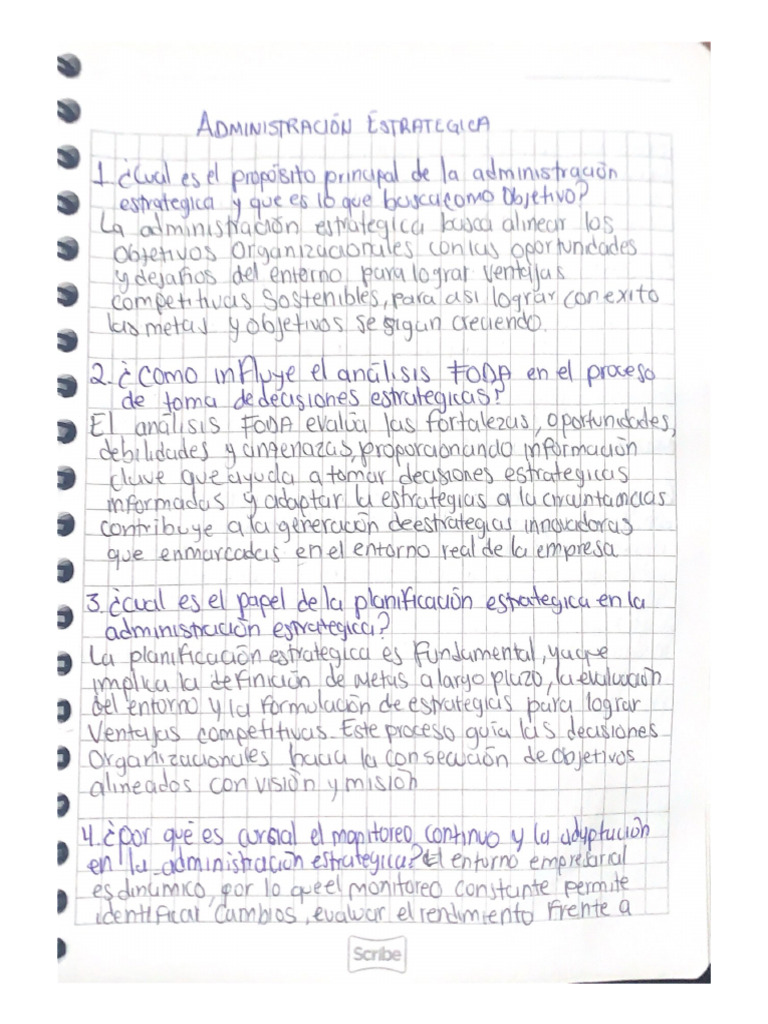 ADMINISTRACIÓN ESTRATEGICA
1. ¿Cual es el propósito principal de la administración
estrategica y que es lo que busca como Objetivo?
La administración estrategica busca alinear los
Objetivos Organizacionales con las oportunidades
y desafios del entorno para lograr ventajas
competitivas Sostenibles, para asi lograr con exito
las metas y objetivos se sigan creciendo.
2. ¿Como influye el análisis FODA en el proceso
de toma de decisiones estrategicas?
El análisis FODA evalúa las fortalezas, oportunidades,
debilidades y amenazas, proporcionando información
clave que ayuda a tomar decisiones estrategicas
informadas y adaptar la estrategias a la circuntancias
contribuye a la generación de estrategias innovadoras
que enmarcadas en el entorno real de la empresa
3. ¿cual es el papel de la planificación estrategica en la
administración estrategica?
La planificación estrategica es Fundamental, ya que
implica la definición de Metas a largo plazo, la evaluación
del entorno y la formulación de estrategias para lograr
Ventajas competitivas. Este proceso guia las decisiones
Organizacionales hacia la consecución de Objetivos
alineados con visión y misión
4. ¿por qué es cursial el monitoreo continuo y la adaptación
en la administración estrategica? El entorno empresarial
es dinamico, por lo que el monitoreo constante permite
identificar Cambios, evaluar el rendimiento Frente a
Scribe